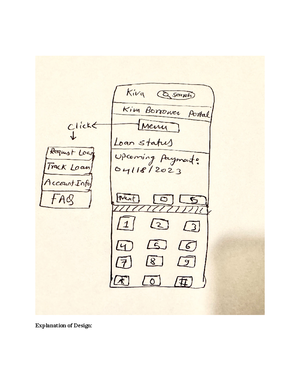 Kiva Search
Kiva Borrower Portal
Click
Menu
Loan status
Upcoming Payment:
04/18/2023
Request Loan
Track Loan
Account Info
FAQ
1 2 3
4 5 6
7 8 9
* 0 #
Explanation of Design: